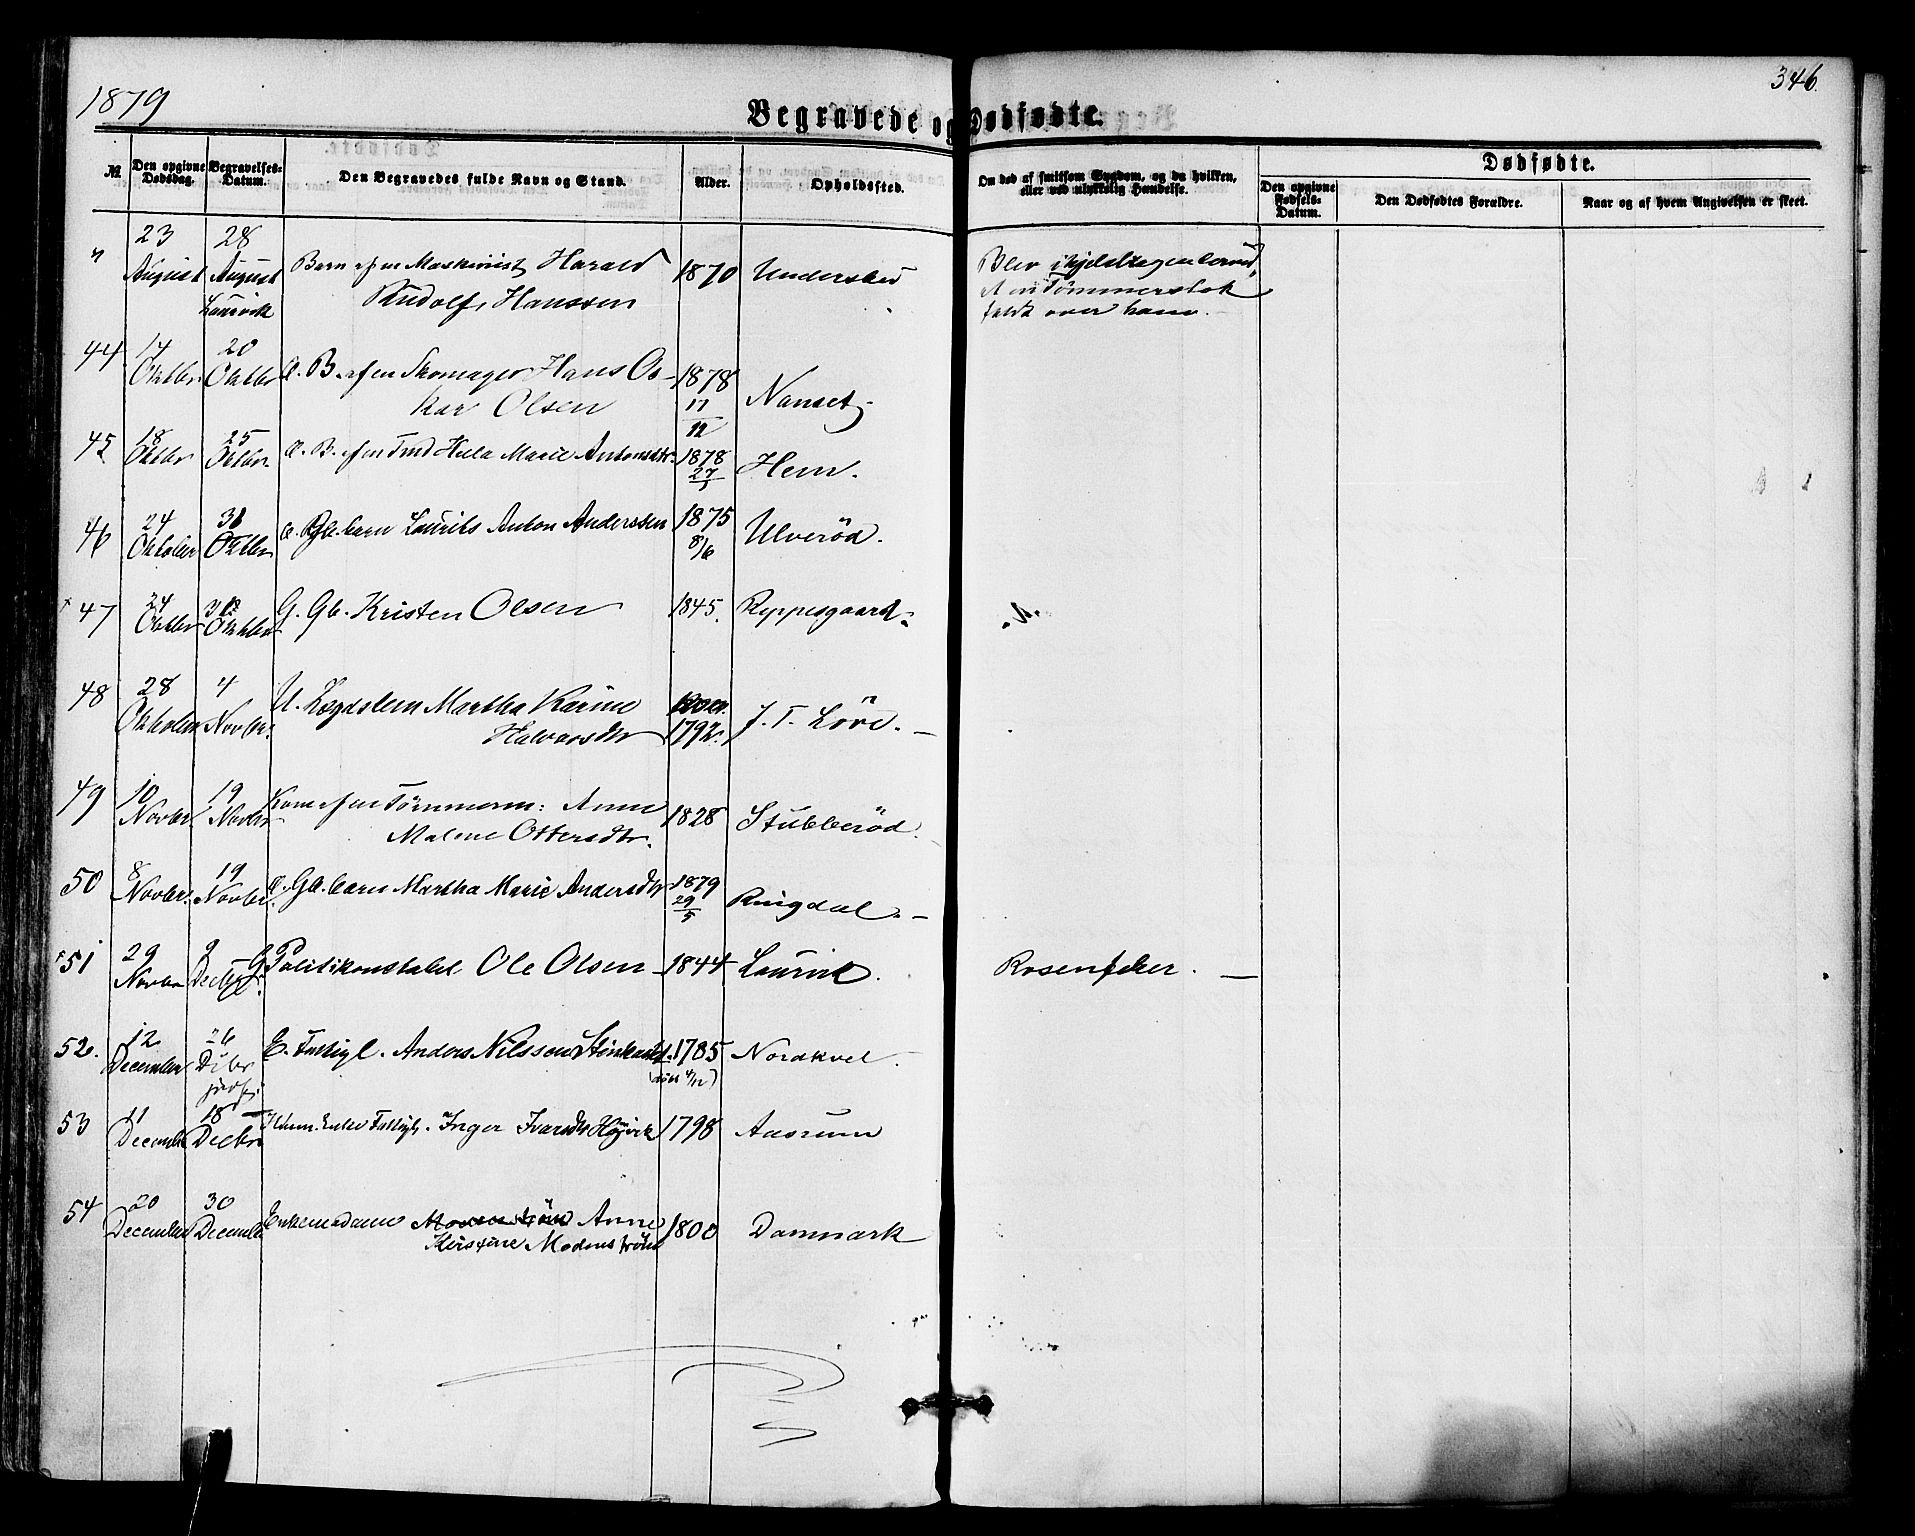 1879
346.
Begravede og Dødfødte.
No.
Den opgivne Dødsdag.
Begravelses-Datum.
Den Begravedes fulde Navn og Stand.
Alder.
Opholdssted.
Om død af smitsom Sygdom, og da hvilken, eller ved ulykkelig Hændelse.
Dødfødte.
Den opgivne Fødsels-Datum.
Den Dødfødtes Forældre.
Naar og af hvem Angivelsen er skeet.
" 23 August 28 August Laurvik Barn af en Maskinist Harald 1870 Undersbo Blev ihjelslagen
Rudolf Hanssen
at en Tømmerstok
faldt over ham.
44 14 Oktbr 20 Oktbr B. af en Skomager Hans Os- 1878 Nanset
kar Olsen 11/12
45 18 Oktbr 25 Oktbr B. af en Marie Antonsdtr. 1878 27/5 Hem.
46 24 Oktober 31 Oktbr Gb. barn Laurits Anton Anderssen 1875 8/6 Ulverød.
47 24 Oktbr Oktbr G. Gb. Kristen Olsen 1845. Reppesgaard.
48 28 Oktober 4 Novbr. U. Lægdslem Martha Karine J. T. Løve. —
Halvorsdtr 1792.
49 10 Novbr. 19 Novbr Kone af en Tømmerm: Anne 1828 Stubberød.
Malene Ottersdtr.
50 8 Novbr. 19 Novbr. Gb. barn Martha Marie Andersdtr 1879 29/5 Ringdal. —
51 29 Novbr 9 Decbr G. Politikonstabel Ole Olsen — 1844 Laurvik. Rosenfeber. —
52. 12 December 26 Dcbr E. Fattigl. Anders Nilssen 1785 Nordkvel
(døbt 4/12)
53 11 Decembr 18 Decbr Enke Fattigl. Inger Ivarsdtr Højvik 1798 Aasrum
54 20 December 30 December Enkemadame Anne 1800 Danmark
Kirstine